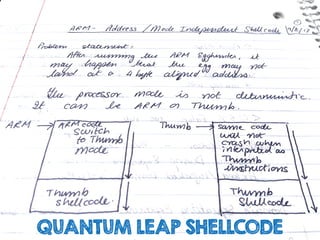 ARM - Address / Mode Independent Shellcode
Problem statement -
After running the ARM Egghunter, it
may happen that the egg may not
land at a 4 byte aligned address.
The processor mode is not deterministic.
It can be ARM or Thumb.
ARM → ARM code
switch
to Thumb
mode
Thumb
shellcode
Thumb → same code
will not
crash when
interpreted as
Thumb
instructions
Thumb
Shellcode
QUANTUM LEAP SHELLCODE